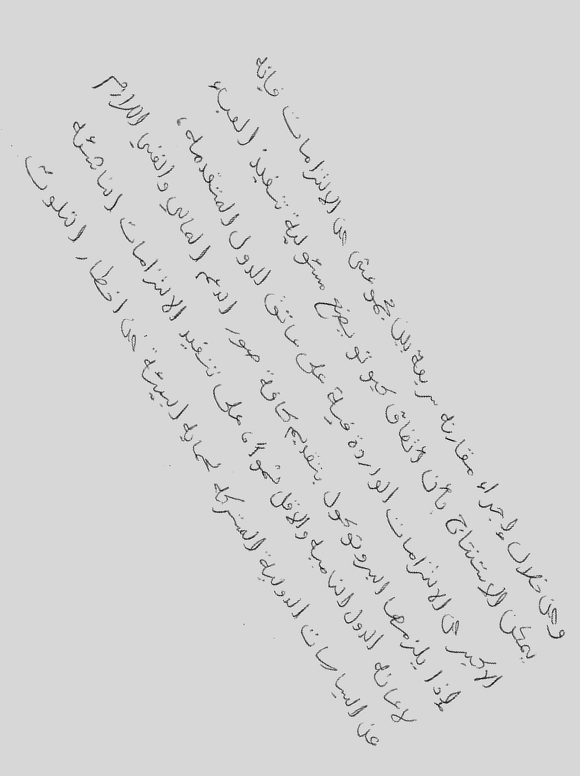 ومن خلال إجراء مقارنه سريعه بين مجموعتى من الالتزامات فإنه
يمكن الاستنتاج بأن اتفاق كيوتو يضع مسئولية تنفيذ العبء
الاكبر من الالتزامات الواردة فيه على عاتق الدول المتقدمه،
يلزمها البروتوكول بتقديم كافة صور الدعم المالي والفني اللازم
لاعانه الدول الناميه والاقل نموًا، على تنفيذ الالتزامات الناشئه
عن السياسات الدولية المشتركه لحمايه البيئة من اخطار التلوث